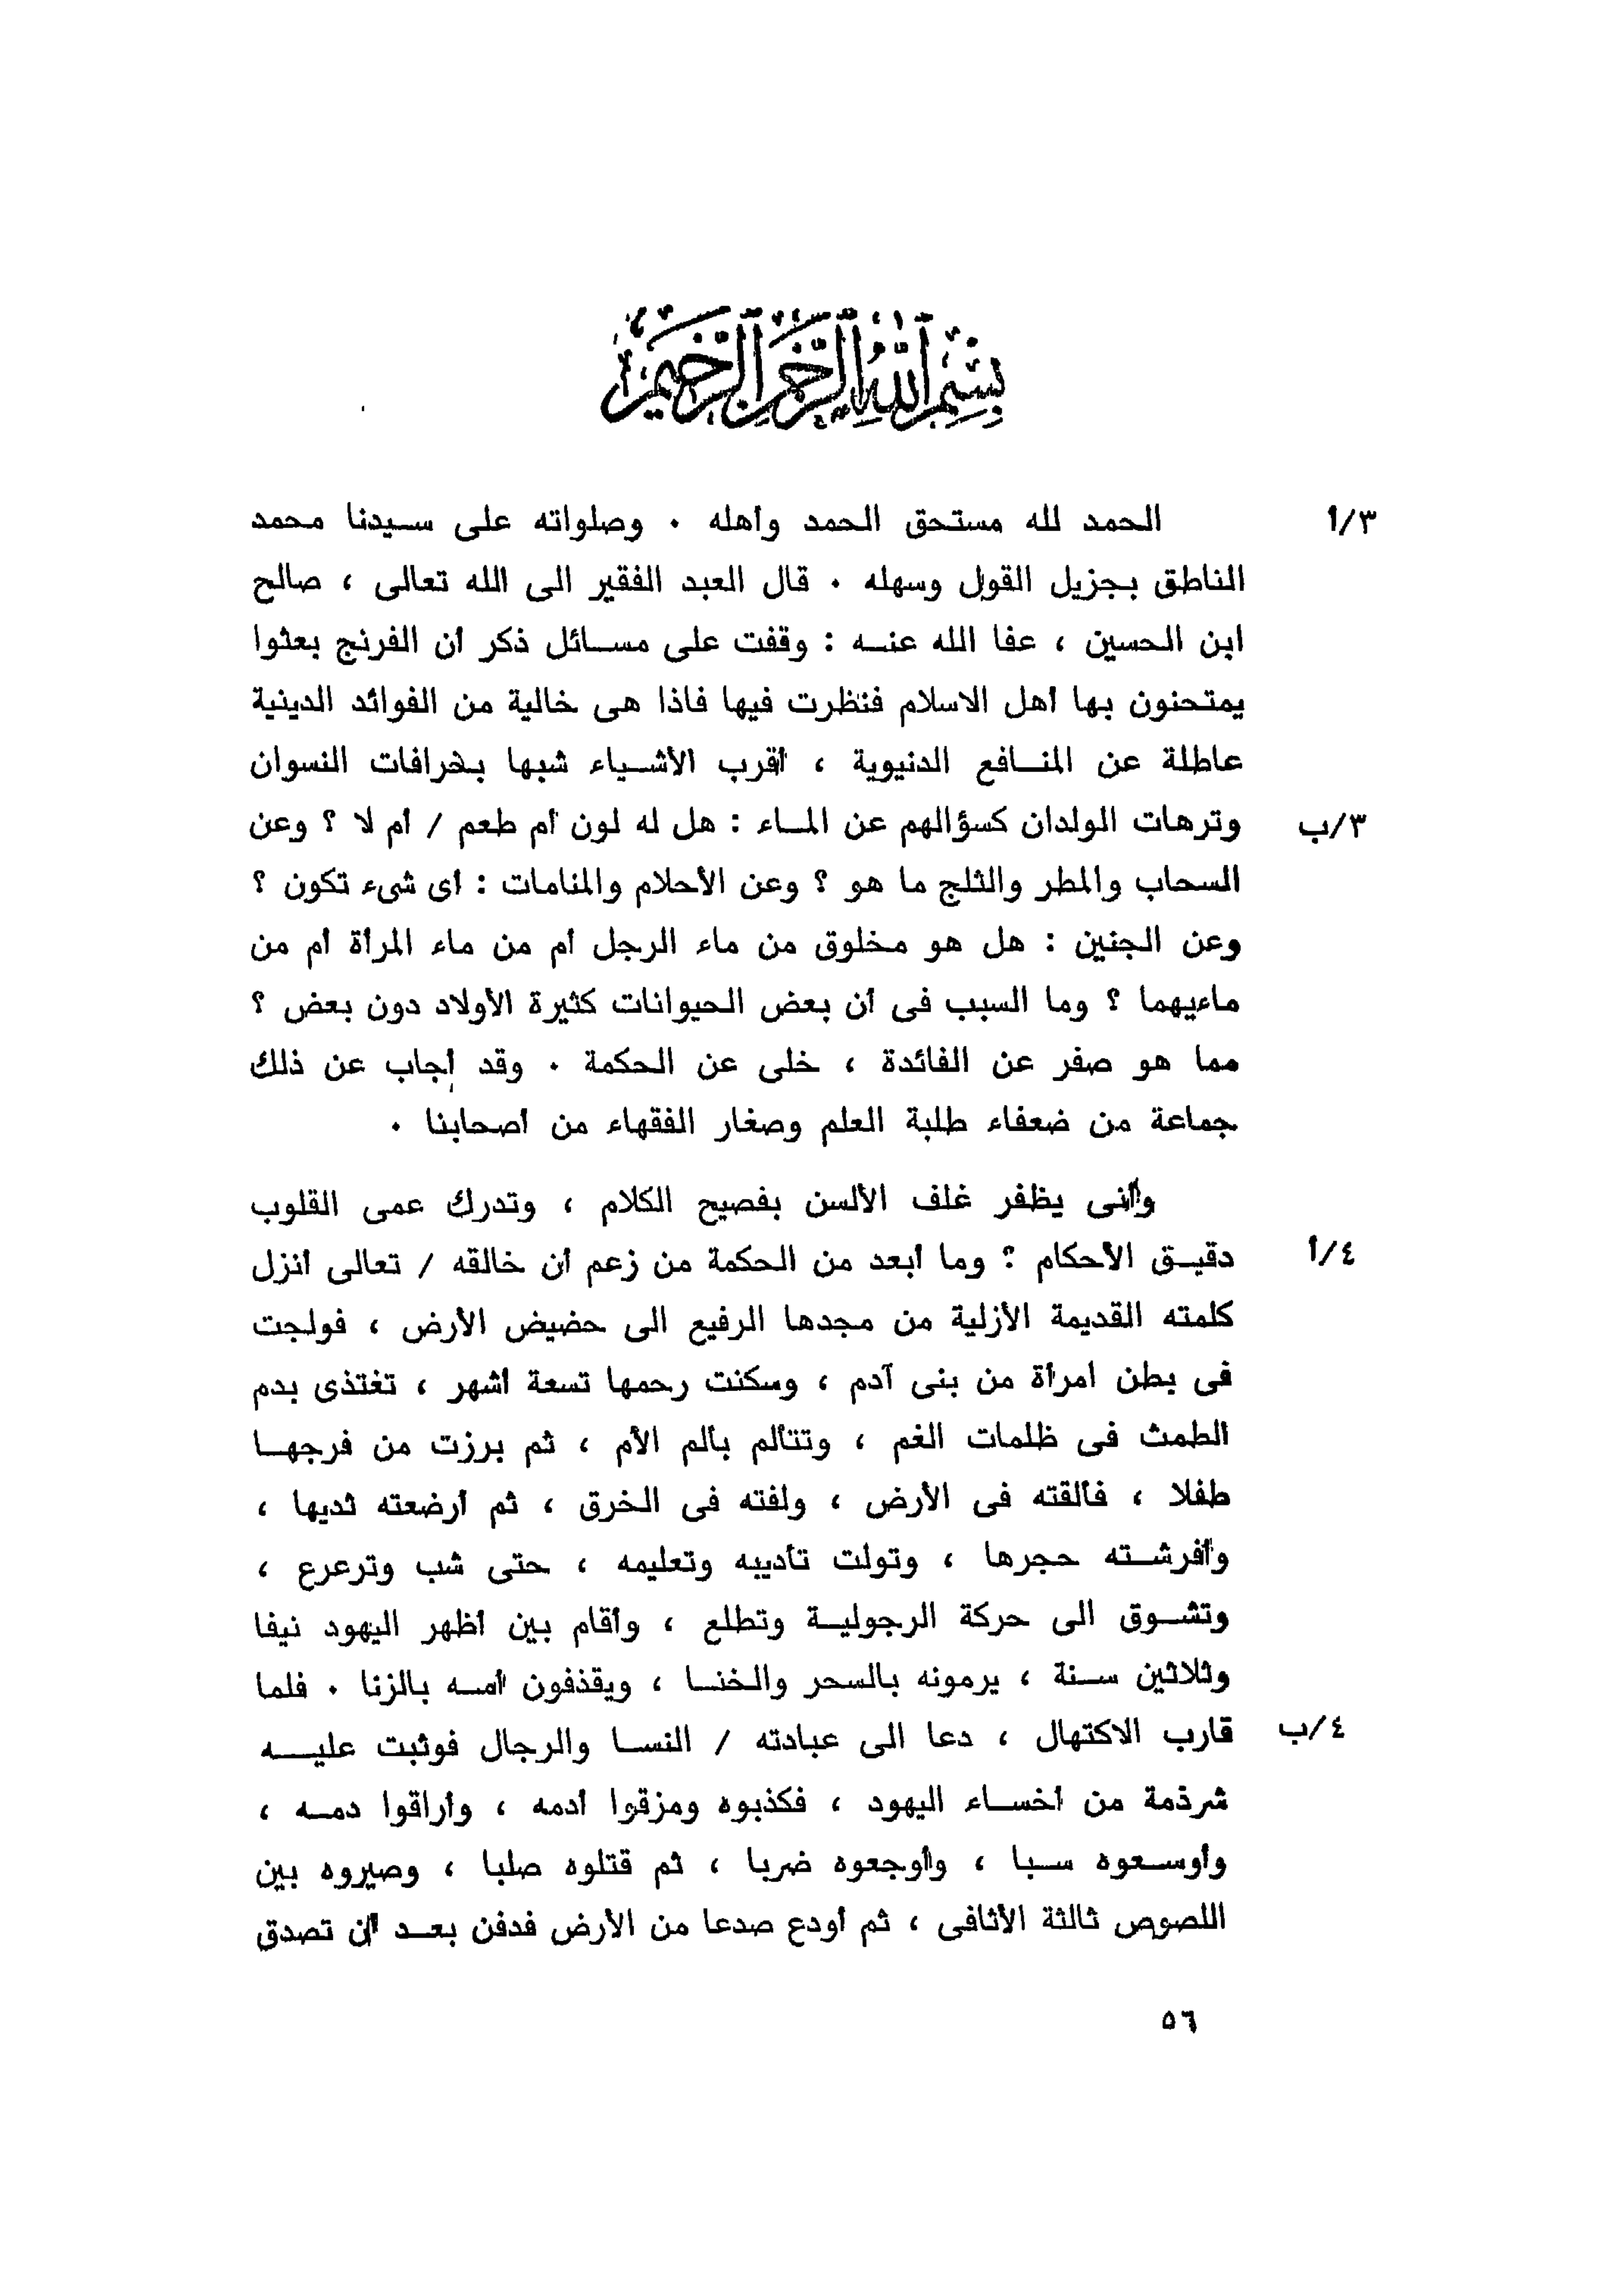 بسم الله الرحمن الرحيم
٣/أ الحمد لله مستحق الحمد وأهله . وصلواته على سيدنا محمد
الناطق بجزيل القول وسهله . قال العبد الفقير الى الله تعالى ، صالح
ابن الحسين ، عفا الله عنه : وقفت على مسائل ذكر أن الفرنج بعثوا
يمتحنون بها أهل الاسلام فنظرت فيها فاذا هى خالية من الفوائد الدينية
عاطلة عن المنافع الدنيوية ، أقرب الأشياء شبها بخرافات النسوان
٣/ب وترهات الولدان كسؤالهم عن الماء : هل له لون أم طعم / أم لا ؟ وعن
السحاب والمطر والثلج ما هو ؟ وعن الأحلام والمنامات : أى شىء تكون ؟
وعن الجنين : هل هو مخلوق من ماء الرجل أم من ماء المرأة أم من
ماءيهما ؟ وما السبب فى أن بعض الحيوانات كثيرة الأولاد دون بعض ؟
مما هو صفر عن الفائدة ، خلى عن الحكمة . وقد أجاب عن ذلك
جماعة من ضعفاء طلبة العلم وصغار الفقهاء من أصحابنا .
وأنى يظفر غلف الألسن بفصيح الكلام ، وتدرك عمى القلوب
٤/أ دقيق الأحكام ؟ وما أبعد من الحكمة من زعم أن خالقه / تعالى أنزل
كلمته القديمة الأزلية من مجدها الرفيع الى حضيض الأرض ، فولجت
فى بطن امرأة من بنى آدم ، وسكنت رحمها تسعة أشهر ، تغتذى بدم
الطمث فى ظلمات الغم ، وتتألم بألم الأم ، ثم برزت من فرجها
طفلا ، فألقته فى الأرض ، ولفته فى الخرق ، ثم أرضعته ثديها ،
وأفرشته حجرها ، وتولت تأديبه وتعليمه ، حتى شب وترعرع ،
وتشوق الى حركة الرجولية وتطلع ، وأقام بين أظهر اليهود نيفا
وثلاثين سنة ، يرمونه بالسحر والخنا ، ويقذفون أمه بالزنا . فلما
٤/ب قارب الاكتهال ، دعا الى عبادته / النسا والرجال فوثبت عليه
شرذمة من أخساء اليهود ، فكذبوه ومزقوا أدمه ، وأراقوا دمه ،
وأوسعوه سبا ، وأوجعوه ضربا ، ثم قتلوه صلبا ، وصيروه بين
اللصوص ثالثة الأثافى ، ثم أودع صدعا من الأرض فدفن بعد أن تصدق
٥٦